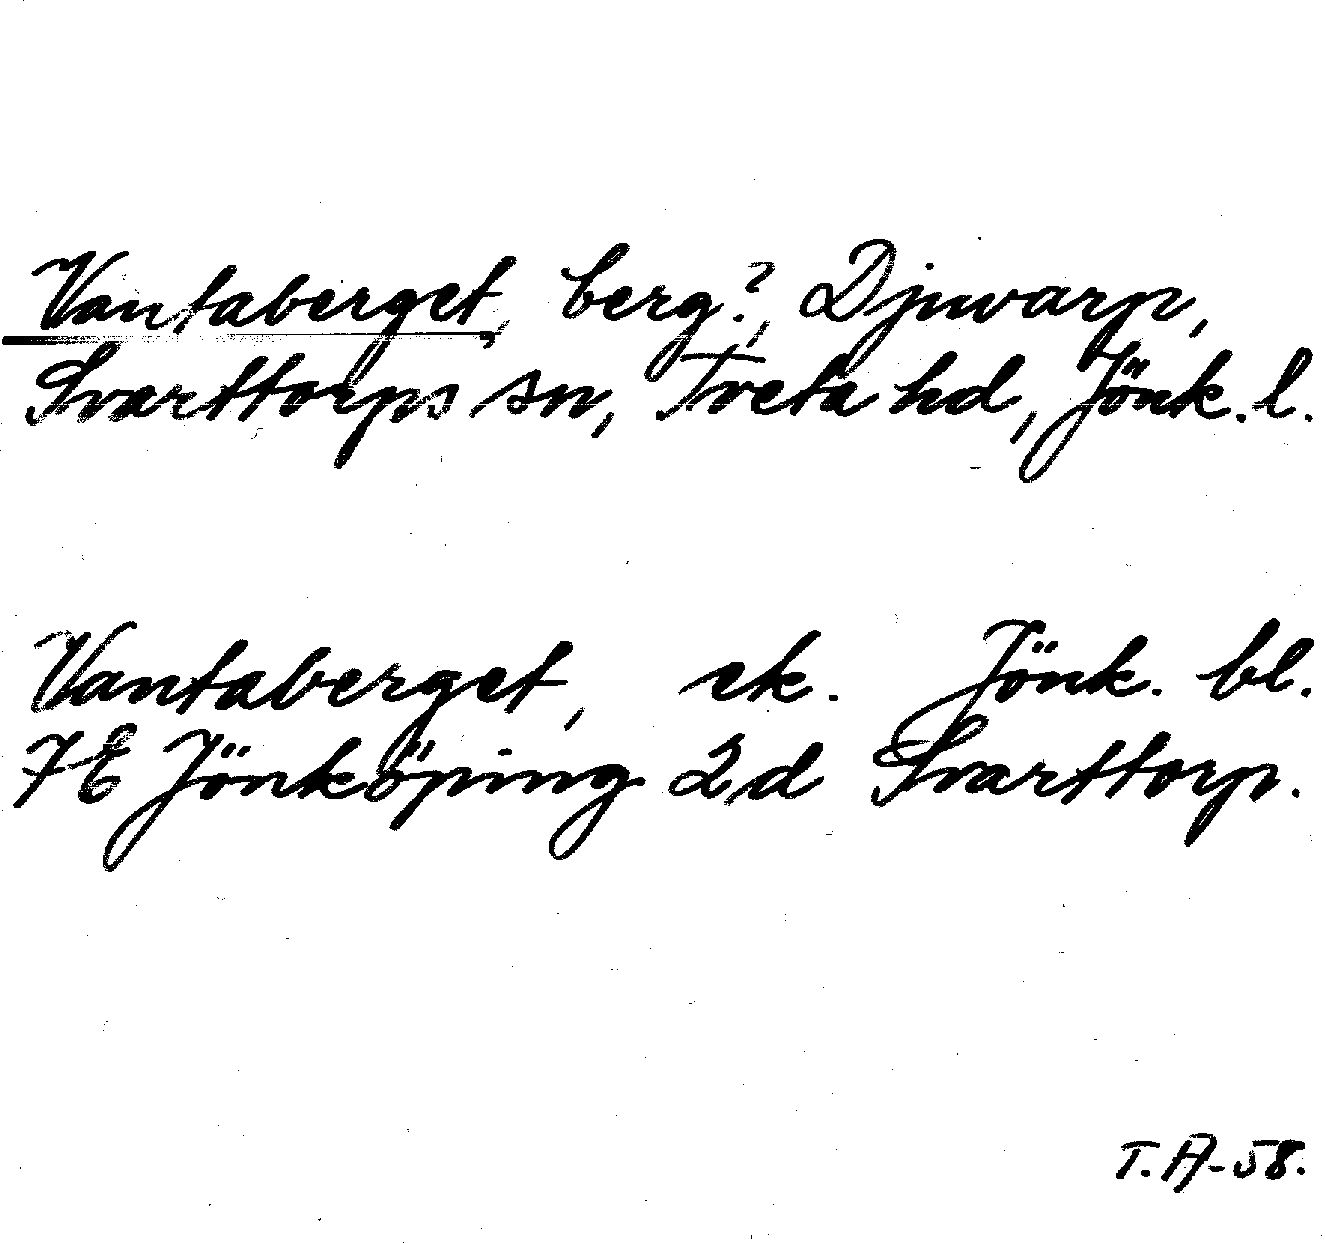 Vantaberget, berg?, Djuvarp,
Svarttorps sn, Tveta hd, Jönk. l.
Vantaberget, ek. Jönk. bl.
7E Jönköping 2d Svarttorp.
T. A-58.